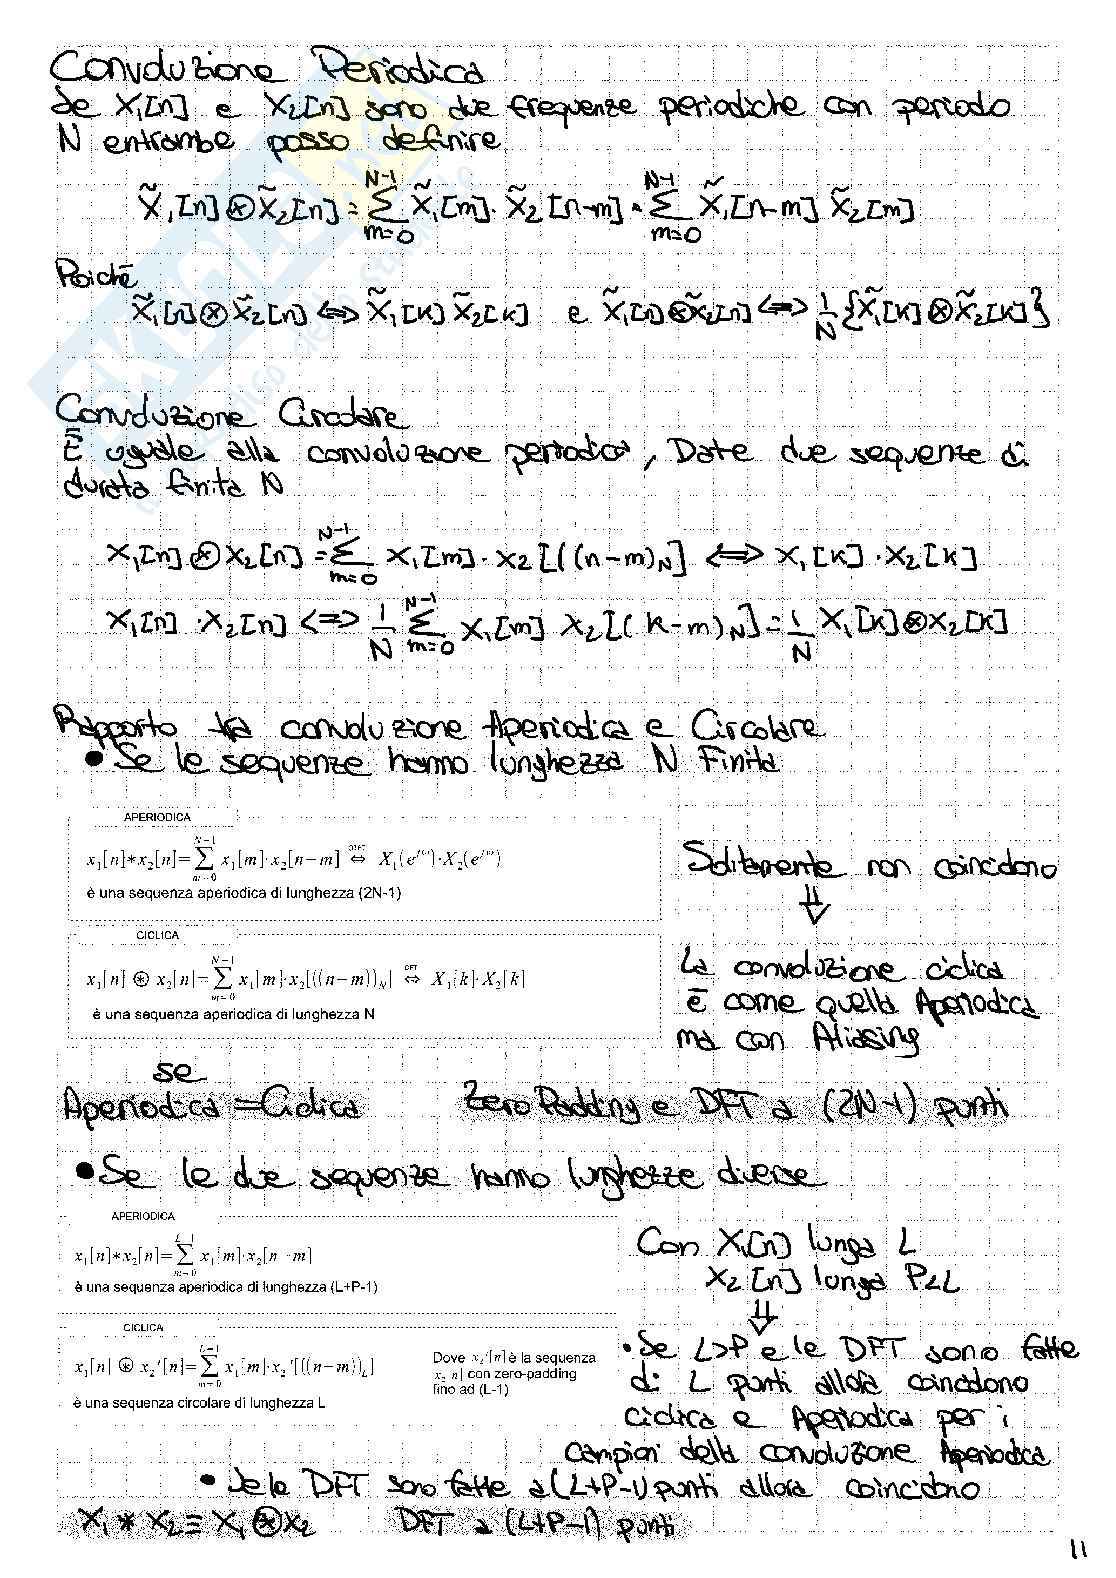 Convoluzione Periodica
Se X₁[n] e X₂[n] sono due frequenze periodiche con periodo
N entrambe posso definire
X̃₁[n] ⊛ X̃₂[n] = ∑_{m=0}^{N-1} X̃₁[m] · X̃₂[n-m] = ∑_{m=0}^{N-1} X̃₁[n-m] X̃₂[m]
Poiché
X̃₁[n] ⊛ X̃₂[n] ⟺ X̃₁[k] X̃₂[k] e X̃₁[n] ⊛ X̃₂[n] ⟺ 1/N {X̃₁[k] ⊛ X̃₂[k]}
Convoluzione Circolare
È uguale alla convoluzione periodica, Date due sequenze di
durata finita N
X₁[n] ⊛ X₂[n] = ∑_{m=0}^{N-1} X₁[m] · X₂[((n-m)_N] ⟺ X₁[k] · X₂[k]
X₁[n] · X₂[n] ⟺ 1/N ∑_{m=0}^{N-1} X₁[m] X₂[(k-m)_N] = 1/N X₁[k] ⊛ X₂[k]
Rapporto tra convoluzione Aperiodica e Circolare
• Se le sequenze hanno lunghezza N Finita
APERIODICA
x₁[n]∗x₂[n]=∑_{m=0}^{N-1} x₁[m]·x₂[n-m] ⇔ X₁(e^{jω})·X₂(e^{jω})
è una sequenza aperiodica di lunghezza (2N-1)
Solitamente non coincidono
⇓
CICLICA
x₁[n] ⊛ x₂[n]=∑_{m=0}^{N-1} x₁[m]·x₂[((n-m))_N] DFT ⇔ X₁[k]·X₂[k]
è una sequenza aperiodica di lunghezza N
La convoluzione ciclica
è come quella Aperiodica
ma con Aliasing
se
Aperiodica = Ciclica Zero Padding e DFT a (2N-1) punti
• Se le due sequenze hanno lunghezze diverse
APERIODICA
x₁[n]∗x₂[n]=∑_{m=0}^{L-1} x₁[m]·x₂[n-m]
è una sequenza aperiodica di lunghezza (L+P-1)
Con X₁[n] lunga L
X₂[n] lunga P<L
⇓
CICLICA
x₁[n] ⊛ x₂'[n]=∑_{m=0}^{L-1} x₁[m]·x₂'[((n-m))_L]
Dove x₂'[n] è la sequenza
x₂[n] con zero-padding
fino ad (L-1)
è una sequenza circolare di lunghezza L
• Se L>P e le DFT sono fatte
di L punti allora coincidono
Ciclica e Aperiodica per i
campioni della convoluzione Aperiodica
• Se le DFT sono fatte a (L+P-1) punti allora coincidono
X₁ * X₂ = X₁ ⊛ X₂ DFT a (L+P-1) punti
11